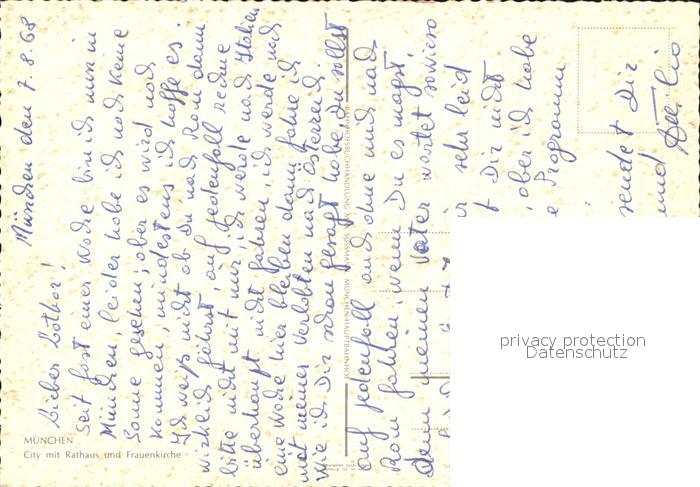 München den 7.8.68
Lieber Lothar!
Seit fast einer Woche bin ich nun in
München, leider habe ich noch keine
Sonne gesehen, aber es wird noch
kommen, mindestens ich hoffe es.
Ich weiß nicht ob Du nach Rom dann
wirklich fährst, auf jedenfall rechne
bitte nicht mit mir, ich werde nach Italien
überhaupt nicht fahren, ich werde noch
eine Woche hier bleiben dann fahre ich
mit meiner Verlobten nach Österreich.
Wie ich Dir schon gesagt habe, Du sollst
auf jedenfall auch ohne mich nach
Rom fahren, wenn Du es magst,
denn meinen Vater wartet sowieso
sehr leid
Dir nicht
aber ich habe
Programm
sendet Dir
und
MÜNCHEN
City mit Rathaus und Frauenkirche
privacy protection
Datenschutz